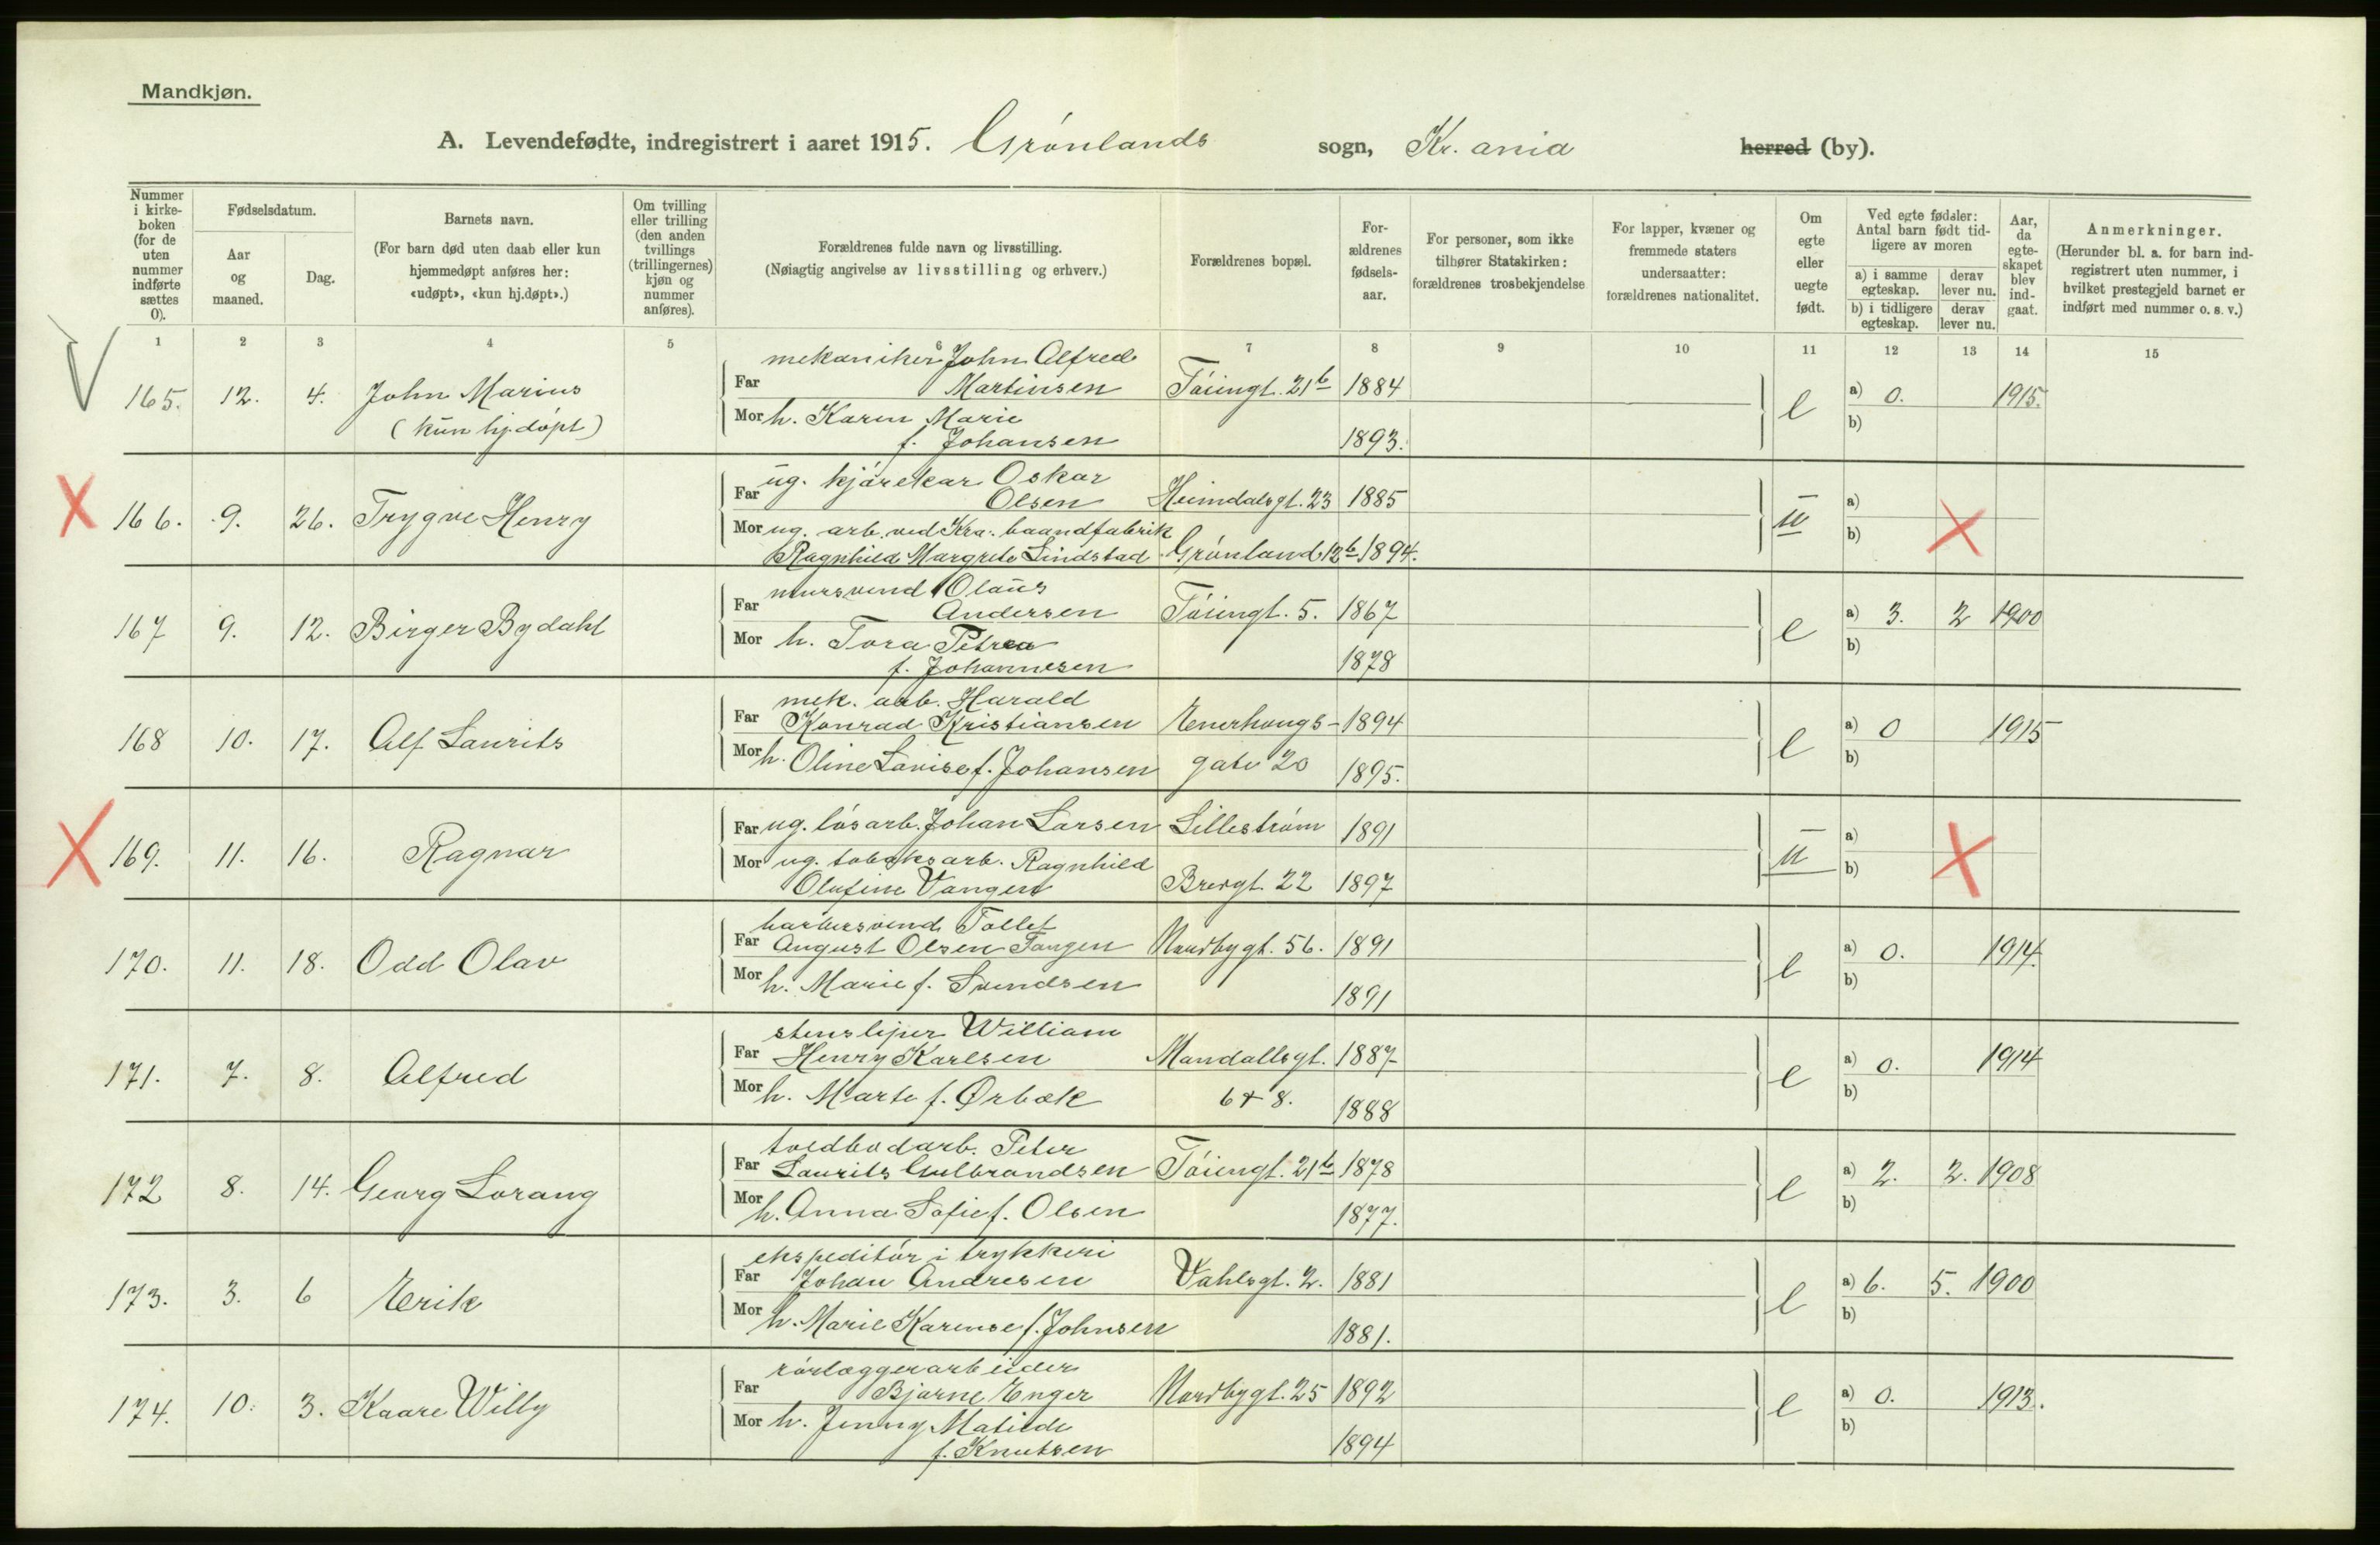 Mandkjøn.
A. Levendefødte, indregistrert i aaret 1915. Grønlands sogn, Kr. ania herred (by).
Nummer i kirke-boken (for de uten nummer indførte sættes 0).
Fødselsdatum.
Aar og maaned.
Dag.
Barnets navn.
(For barn død uten daab eller kun hjemmedøpt anføres her: «udøpt», «kun hj.døpt».)
Om tvilling eller trilling (den anden tvillings (trillingernes) kjøn og nummer anføres).
Forældrenes fulde navn og livsstilling.
(Nøiagtig angivelse av livsstilling og erhverv.)
Forældrenes bopæl.
For-ældrenes fødsels-aar.
For personer, som ikke tilhører Statskirken: forældrenes trosbekjendelse
For lapper, kvæner og fremmede staters undersaatter: forældrenes nationalitet.
Om egte eller uegte født.
Ved egte fødsler: Antal barn født tid-ligere av moren
a) i samme egteskap. derav lever nu.
b) i tidligere egteskap. derav lever nu.
Aar, da egte-skapet blev ind-gaat.
Anmerkninger.
(Herunder bl. a. for barn ind-registrert uten nummer, i hvilket prestegjeld barnet er indført med nummer o. s. v.)
1 2 3 4 5 6 7 8 9 10 11 12 13 14 15
mekaniker John Alfred
165. 12. 4. John Marius Far Martinsen Tøiengt. 21b 1884 e a) 0. 1915.
(kun hj.døpt) Mor h. Karen Marie b)
f. Johansen 1893.
ug. kjørekar Oskar
X 166. 9. 26. Trygve Henry Far Olsen Heimdalsgt. 23 1885 u a) X
Mor ug. arb. ved Kra. baandfabrik b)
Ragnhild Margrete Lindstad Grønland 12b 1894.
mursvend Olaus
167 9. 12. Birger Bydahl Far Andersen Tøiengt. 5. 1867 e a) 3. 2 1900
Mor h. Tora Petrea b)
f. Johannesen 1878
mek. arb. Harald
168 10. 17. Alf Laurits Far Konrad Kristiansen Enerhougs- 1894 e a) 0 1915
Mor h. Oline Lovise f. Johansen gate 20 1895. b)
X 169. 11. 16. Ragnar Far ug. løsarb. Johan Larsen Lillestrøm 1891 u a) X
Mor ug. tobaksarb. Ragnhild b)
Olufine Vangen Breigt. 22 1897
barbersvend Tollef
170. 11. 18. Odd Olav Far August Olsen Tangen Nordbygt. 56. 1891 e a) 0. 1914.
Mor h. Marie f. Svendsen 1891 b)
stensliper William
171. 7. 8. Alfred Far Henry Karlsen Mandallsgt. 1887 e a) 0. 1914
Mor h. Marte f. Ørbæk 6 + 8. 1888 b)
toldbodarb. Peter
172 8. 14. Georg Lorang Far Laurits Gulbrandsen Tøiengt. 21b 1878 e a) 2. 2. 1908
Mor h. Anna Sofie f. Olsen 1877. b)
ekspeditør i trykkeri
173. 3. 6 Erik Far Johan Andresen Vahlsgt. 2. 1881 e a) 6. 5. 1900
Mor h. Marie Karense f. Johnsen 1881. b)
rørlæggerarbeider
174. 10. 3. Kaare Willy Far Bjarne Enger Nordbygt. 25 1892 e a) 0. 1913.
Mor h. Jenny Matilde b)
f. Knutsen 1894